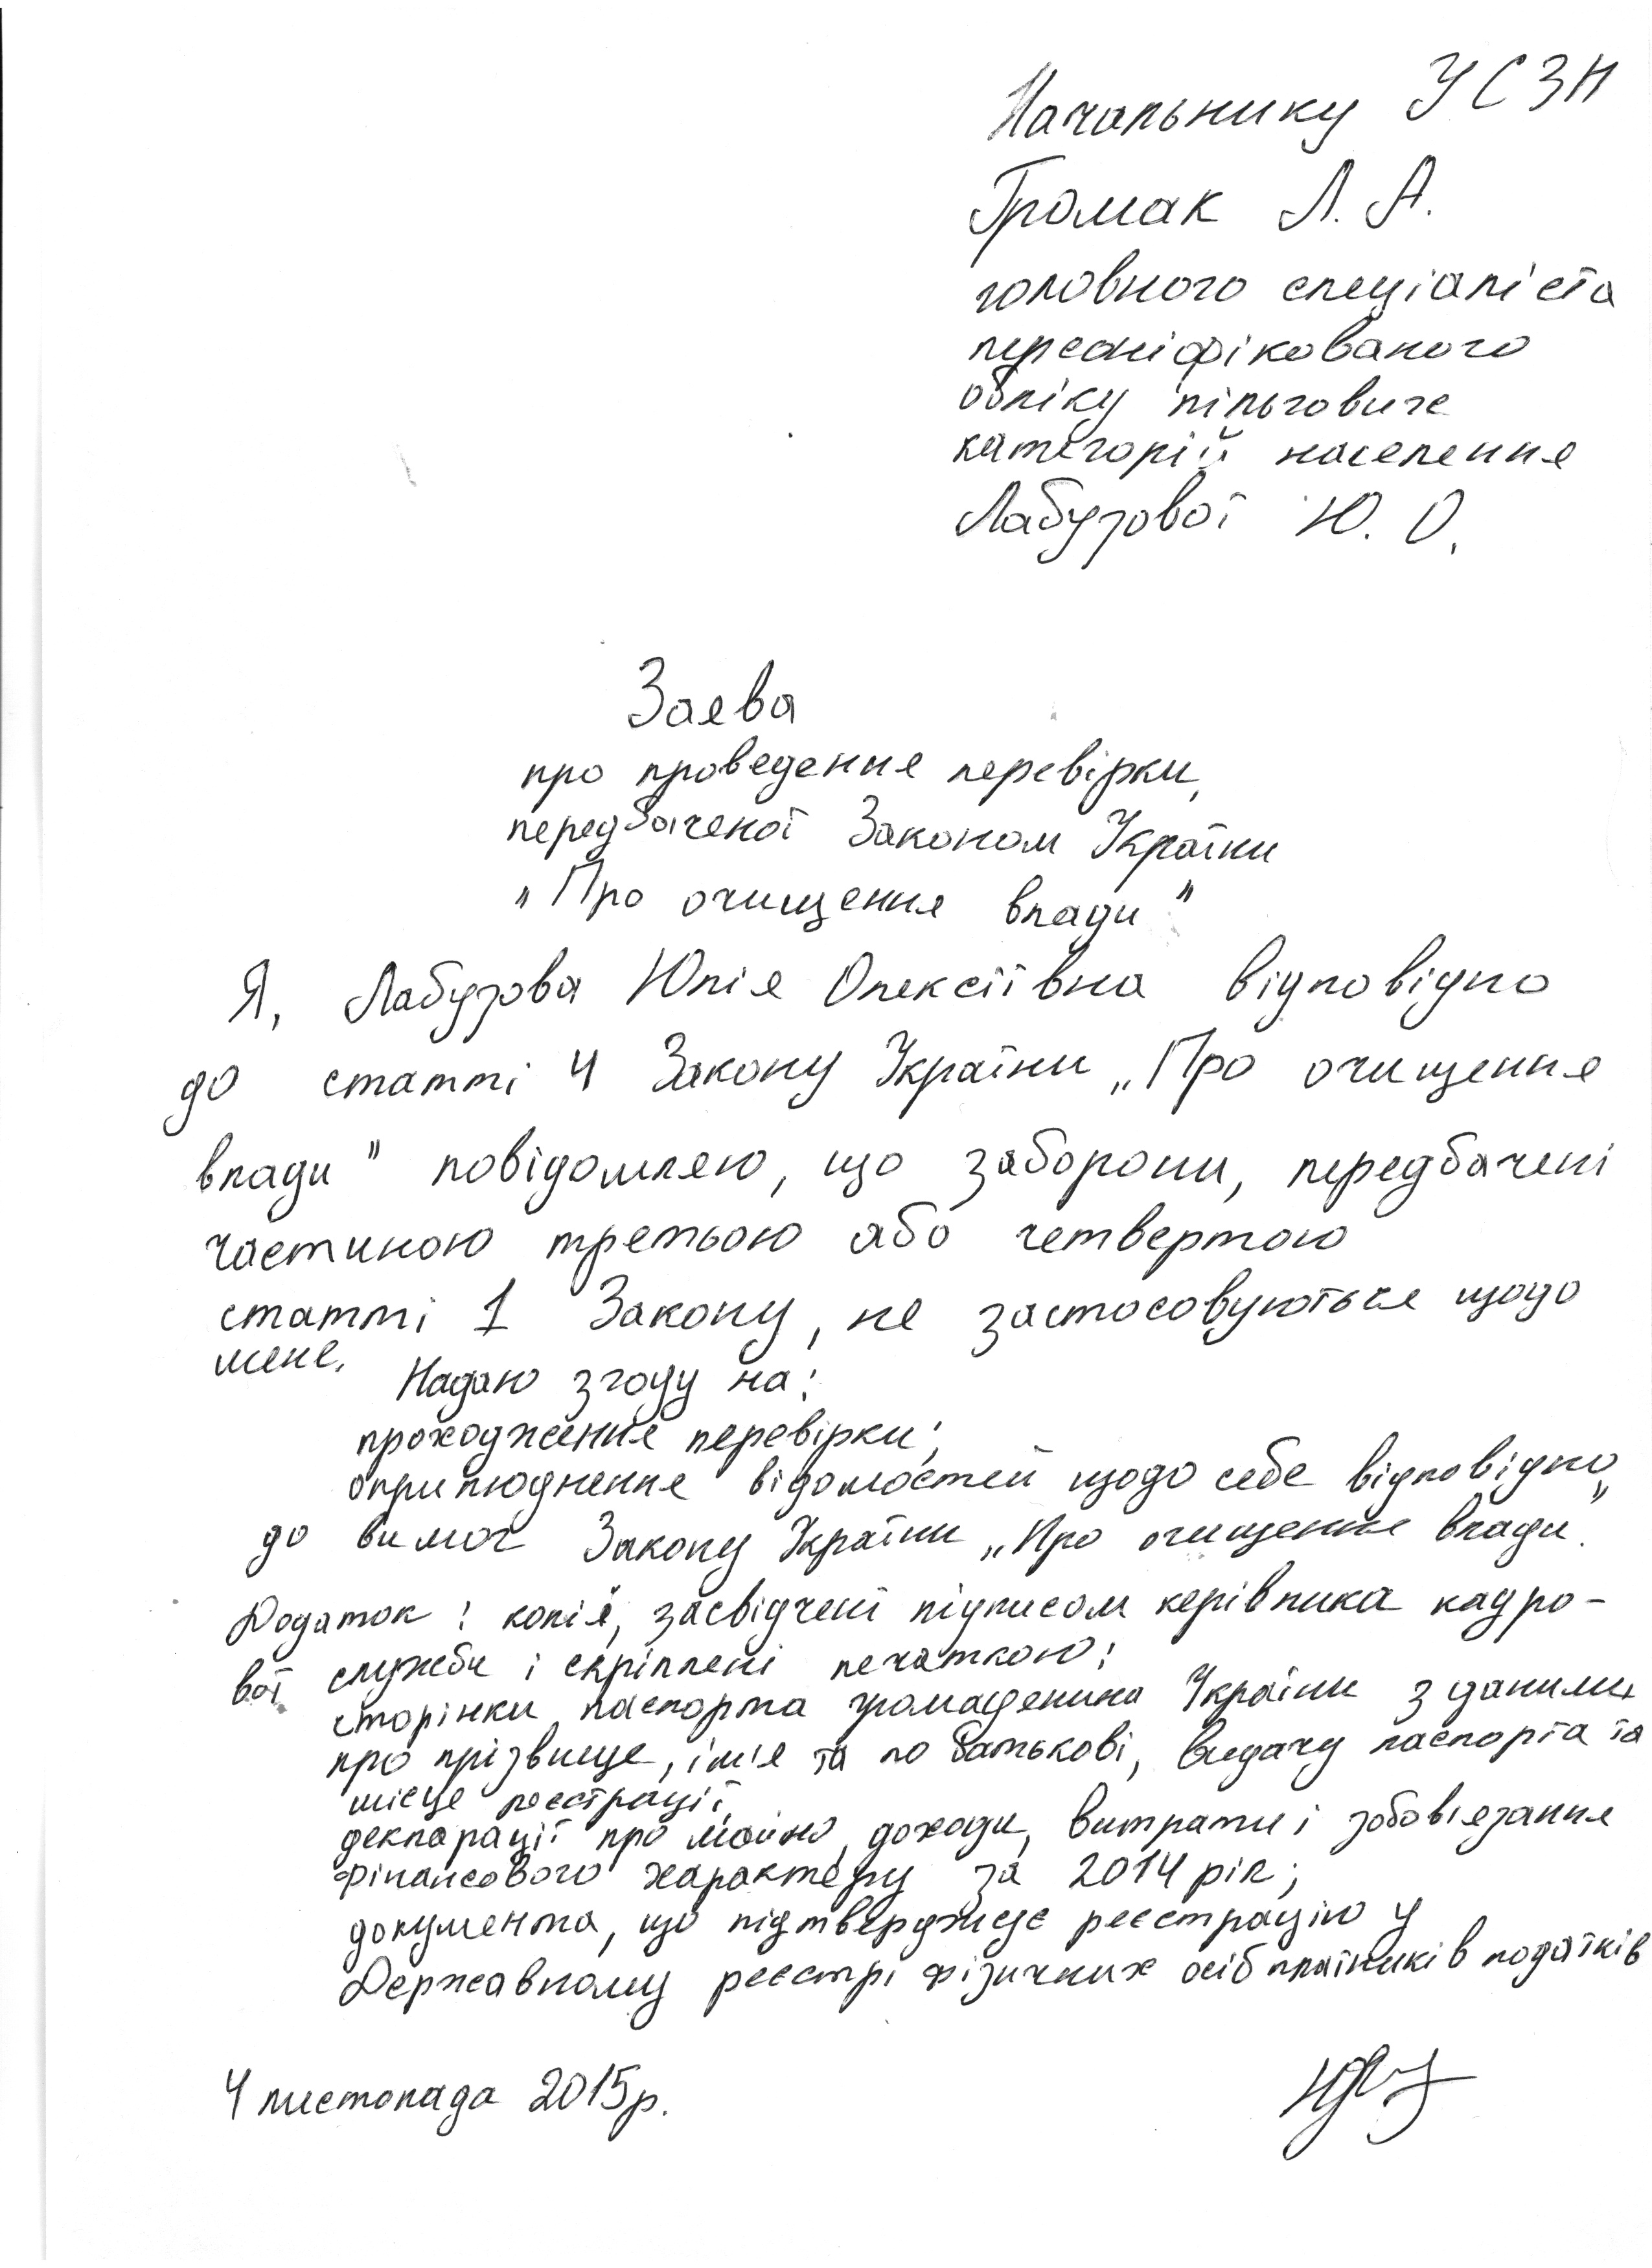 Начальнику УСЗН
Громак Л. А.
головного спеціаліста
персоніфікованого
обліку пільгових
категорій населення
Лабузової Ю. О.
Заява
про проведення перевірки,
передбаченої Законом України
„Про очищення влади"
Я, Лабузова Юлія Олексіївна відповідно
до статті 4 Закону України „Про очищення
влади" повідомляю, що заборони, передбачені
частиною третьою або четвертою
статті 1 Закону, не застосовуються щодо
мене.
Надаю згоду на:
проходження перевірки;
оприлюднення відомостей щодо себе відповідно
до вимог Закону України „Про очищення влади".
Додаток: копії, засвідчені підписом керівника кадро-
вої служби і скріплені печаткою:
сторінки паспорта громадянина України з даними
про прізвище, ім'я та по батькові, видачу паспорта та
місце реєстрації,
декларації про майно, доходи, витрати і зобов'язання
фінансового характеру за 2014 рік;
документа, що підтверджує реєстрацію у
Державному реєстрі фізичних осіб платників податків
4 листопада 2015р.